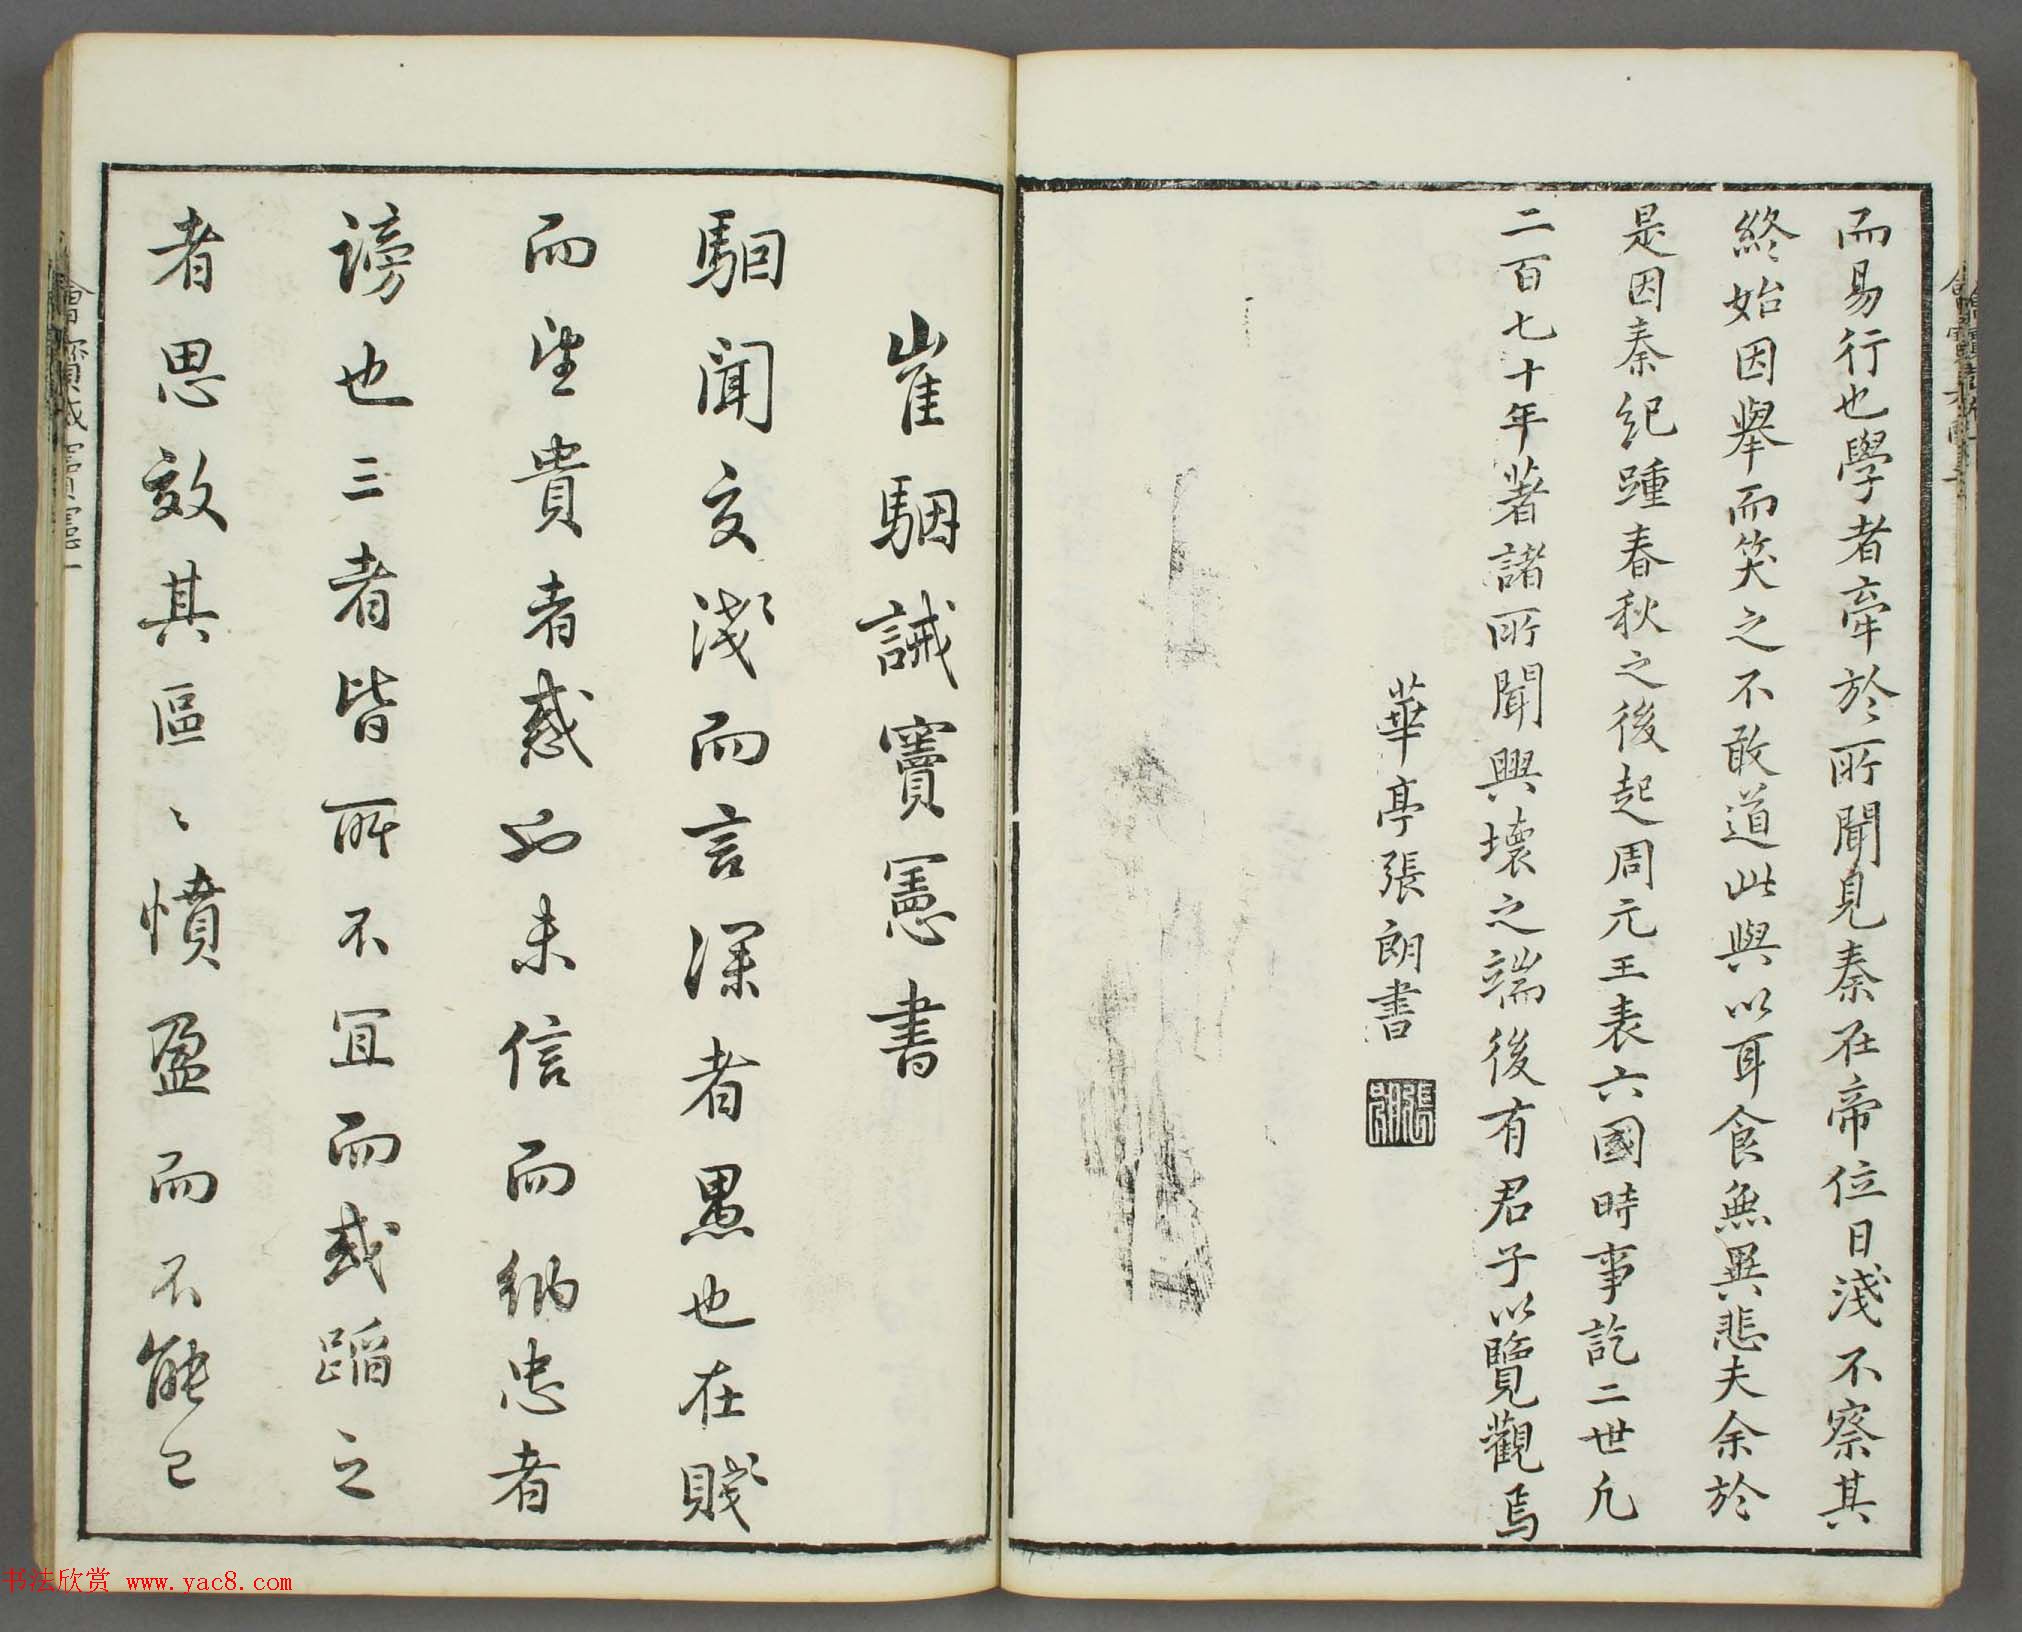 而易行也學者牽於所聞見秦在帝位日淺不察其
終始因舉而笑之不敢道此與以耳食無異悲夫余於
是因秦紀踵春秋之後起周元王表六國時事訖二世凡
二百七十年著諸所聞興壞之端後有君子以覽觀焉
華亭張朗書
張朗
崔駰誡竇憲書
駰聞交淺而言深者愚也在賤
而望貴者惑也未信而納忠者
謗也三者皆所不宜而或蹈之
者思效其區〻憤盈而不能已
书法欣赏 www.yac8.com